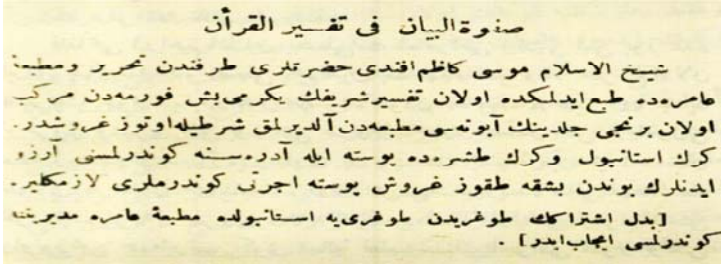 صفوة البيان فى تفسير القرأن
شيخ الاسلام موسى كاظم افندى حضرتلرى طرفندن تحرير ومطبعهٔ
عامره‌ده طبع ايدلمكده اولان تفسير شريفك يكرمى بش فورمه‌دن مركب
اولان برنجى جلدينك آبونه‌سى مطبعه‌دن آلديرلمق شرطيله اوتوز غروشدر.
كرك استانبول وكرك طشره‌ده پوسته ايله آدره‌سنه كوندرلمسنى آرزو
ايدنلرك بوندن بشقه طقوز غروش پوسته اجرتى كوندرملرى لازمكلير.
[بدل اشتراكك طوغريدن طوغرى‌يه استانبولده مطبعهٔ عامره مديريتنه
كوندرلمسى ايجاب ايدر] .